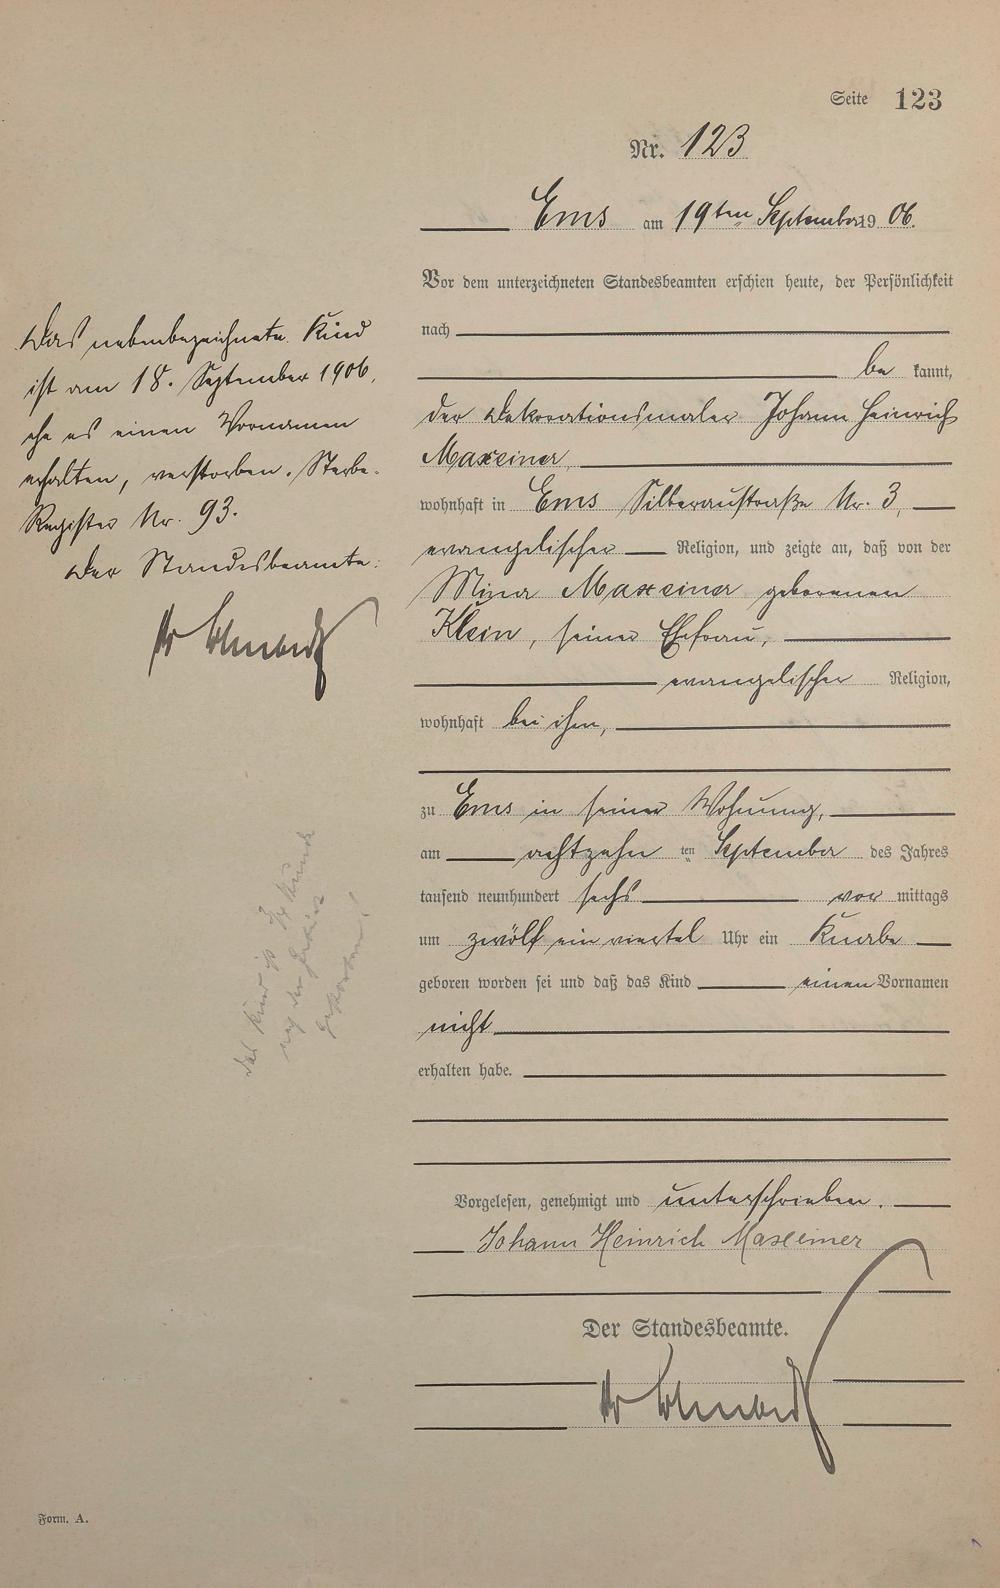 Seite 123
Nr. 123
Ems am 19ten September 1906.
Vor dem unterzeichneten Standesbeamten erschien heute, der Persönlichkeit
nach
be kannt,
der Dekorationsmaler Johann Heinrich
Maxeiner,
wohnhaft in Ems Silberaustraße Nr. 3,
evangelischer Religion, und zeigte an, daß von der
Mina Maxeiner geborenen
Klein, seiner Ehefrau,
evangelischer Religion,
wohnhaft bei ihm,
zu Ems in seiner Wohnung,
am achtzehn ten September des Jahres
tausend neunhundert sechs vor mittags
um zwölf ein viertel Uhr ein Knabe
geboren worden sei und daß das Kind einen Vornamen
nicht
erhalten habe.
Vorgelesen, genehmigt und unterschrieben.
Johann Heinrich Maxeiner
Der Standesbeamte.
Das nebenbezeichnete Kind
ist am 18. September 1906,
ehe es einen Vornamen
erhalten, verstorben. Sterbe-
Register Nr. 93.
Der Standesbeamte:
Das Kind ist
Form. A.